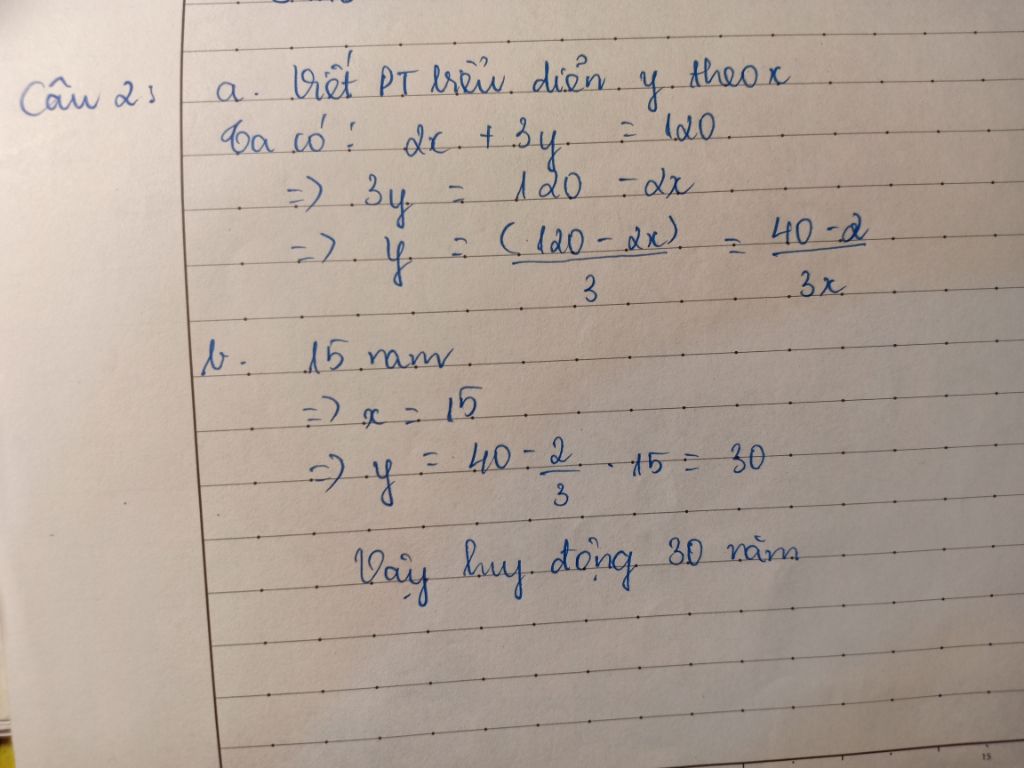 Câu 2: a. Viết PT biểu diễn y theo x
Ta có: 2x + 3y = 120
=> 3y = 120 - 2x
=> y = (120 - 2x) / 3 = 40 - 2 / 3x
b. 15 nam
=> x = 15
=> y = 40 - 2/3 . 15 = 30
Vậy huy động 30 năm
15